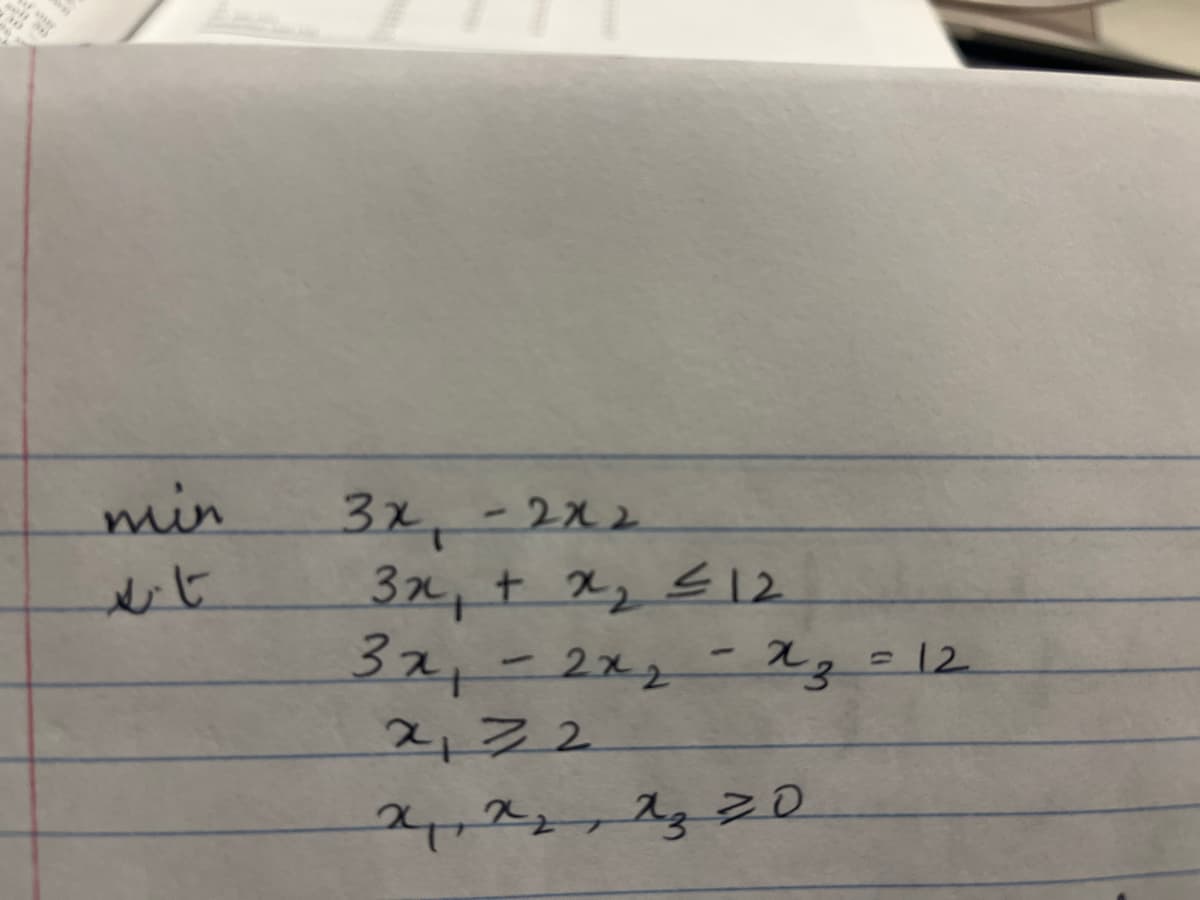 min 3x₁ - 2x₂
s.t 3x₁ + x₂ ≤ 12
3x₁ - 2x₂ - x₃ = 12
x₁ ≥ 2
x₁, x₂, x₃ ≥ 0